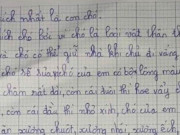 ích nhất là con chó.
ch cho bởi vì chó là loại vật thân th
chó có thể giữ nhà khi chủ đi vắng
chó sẽ sủa, chó của em có bộ lông màu
chấm rất dài, còn cái đuôi thì hoe vẫy
, còn cái đầu thì nhỏ xinh, chó của em
ăn xương chuột, xương nhái, xương ếch